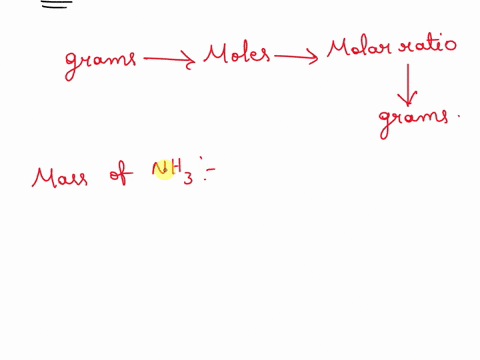 grams → Moles → Molar ratio
↓
grams.
Mass of NH3 :-